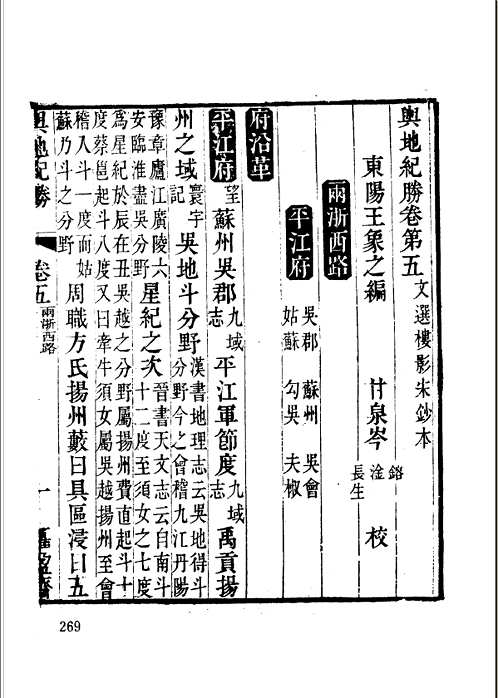 輿地紀勝卷第五 文選樓影宋鈔本
東陽王象之編 甘泉岑 鎔 淦 長生 校
兩浙西路
平江府 吳郡 蘇州 吳會 姑蘇 勾吳 夫椒
府沿革
平江府 望 蘇州吳郡 九域志 平江軍節度 九域志 禹貢揚
州之域 寰宇記 吳地斗分野 漢書地理志云吳地得斗分野今之會稽九江丹陽
豫章廬江廣陵六安臨淮盡吳分野 星紀之次 晉書天文志云自南斗十二度至須女之七度
爲星紀於辰在丑吳越之分野屬揚州費直起斗十度蔡邕起斗八度又曰牽牛須女屬吳越揚州至會
稽入斗一度而姑蘇乃斗之分野 周職方氏揚州藪曰具區浸曰五
輿地紀勝 卷五 兩浙西路 一 懼盈齋
269